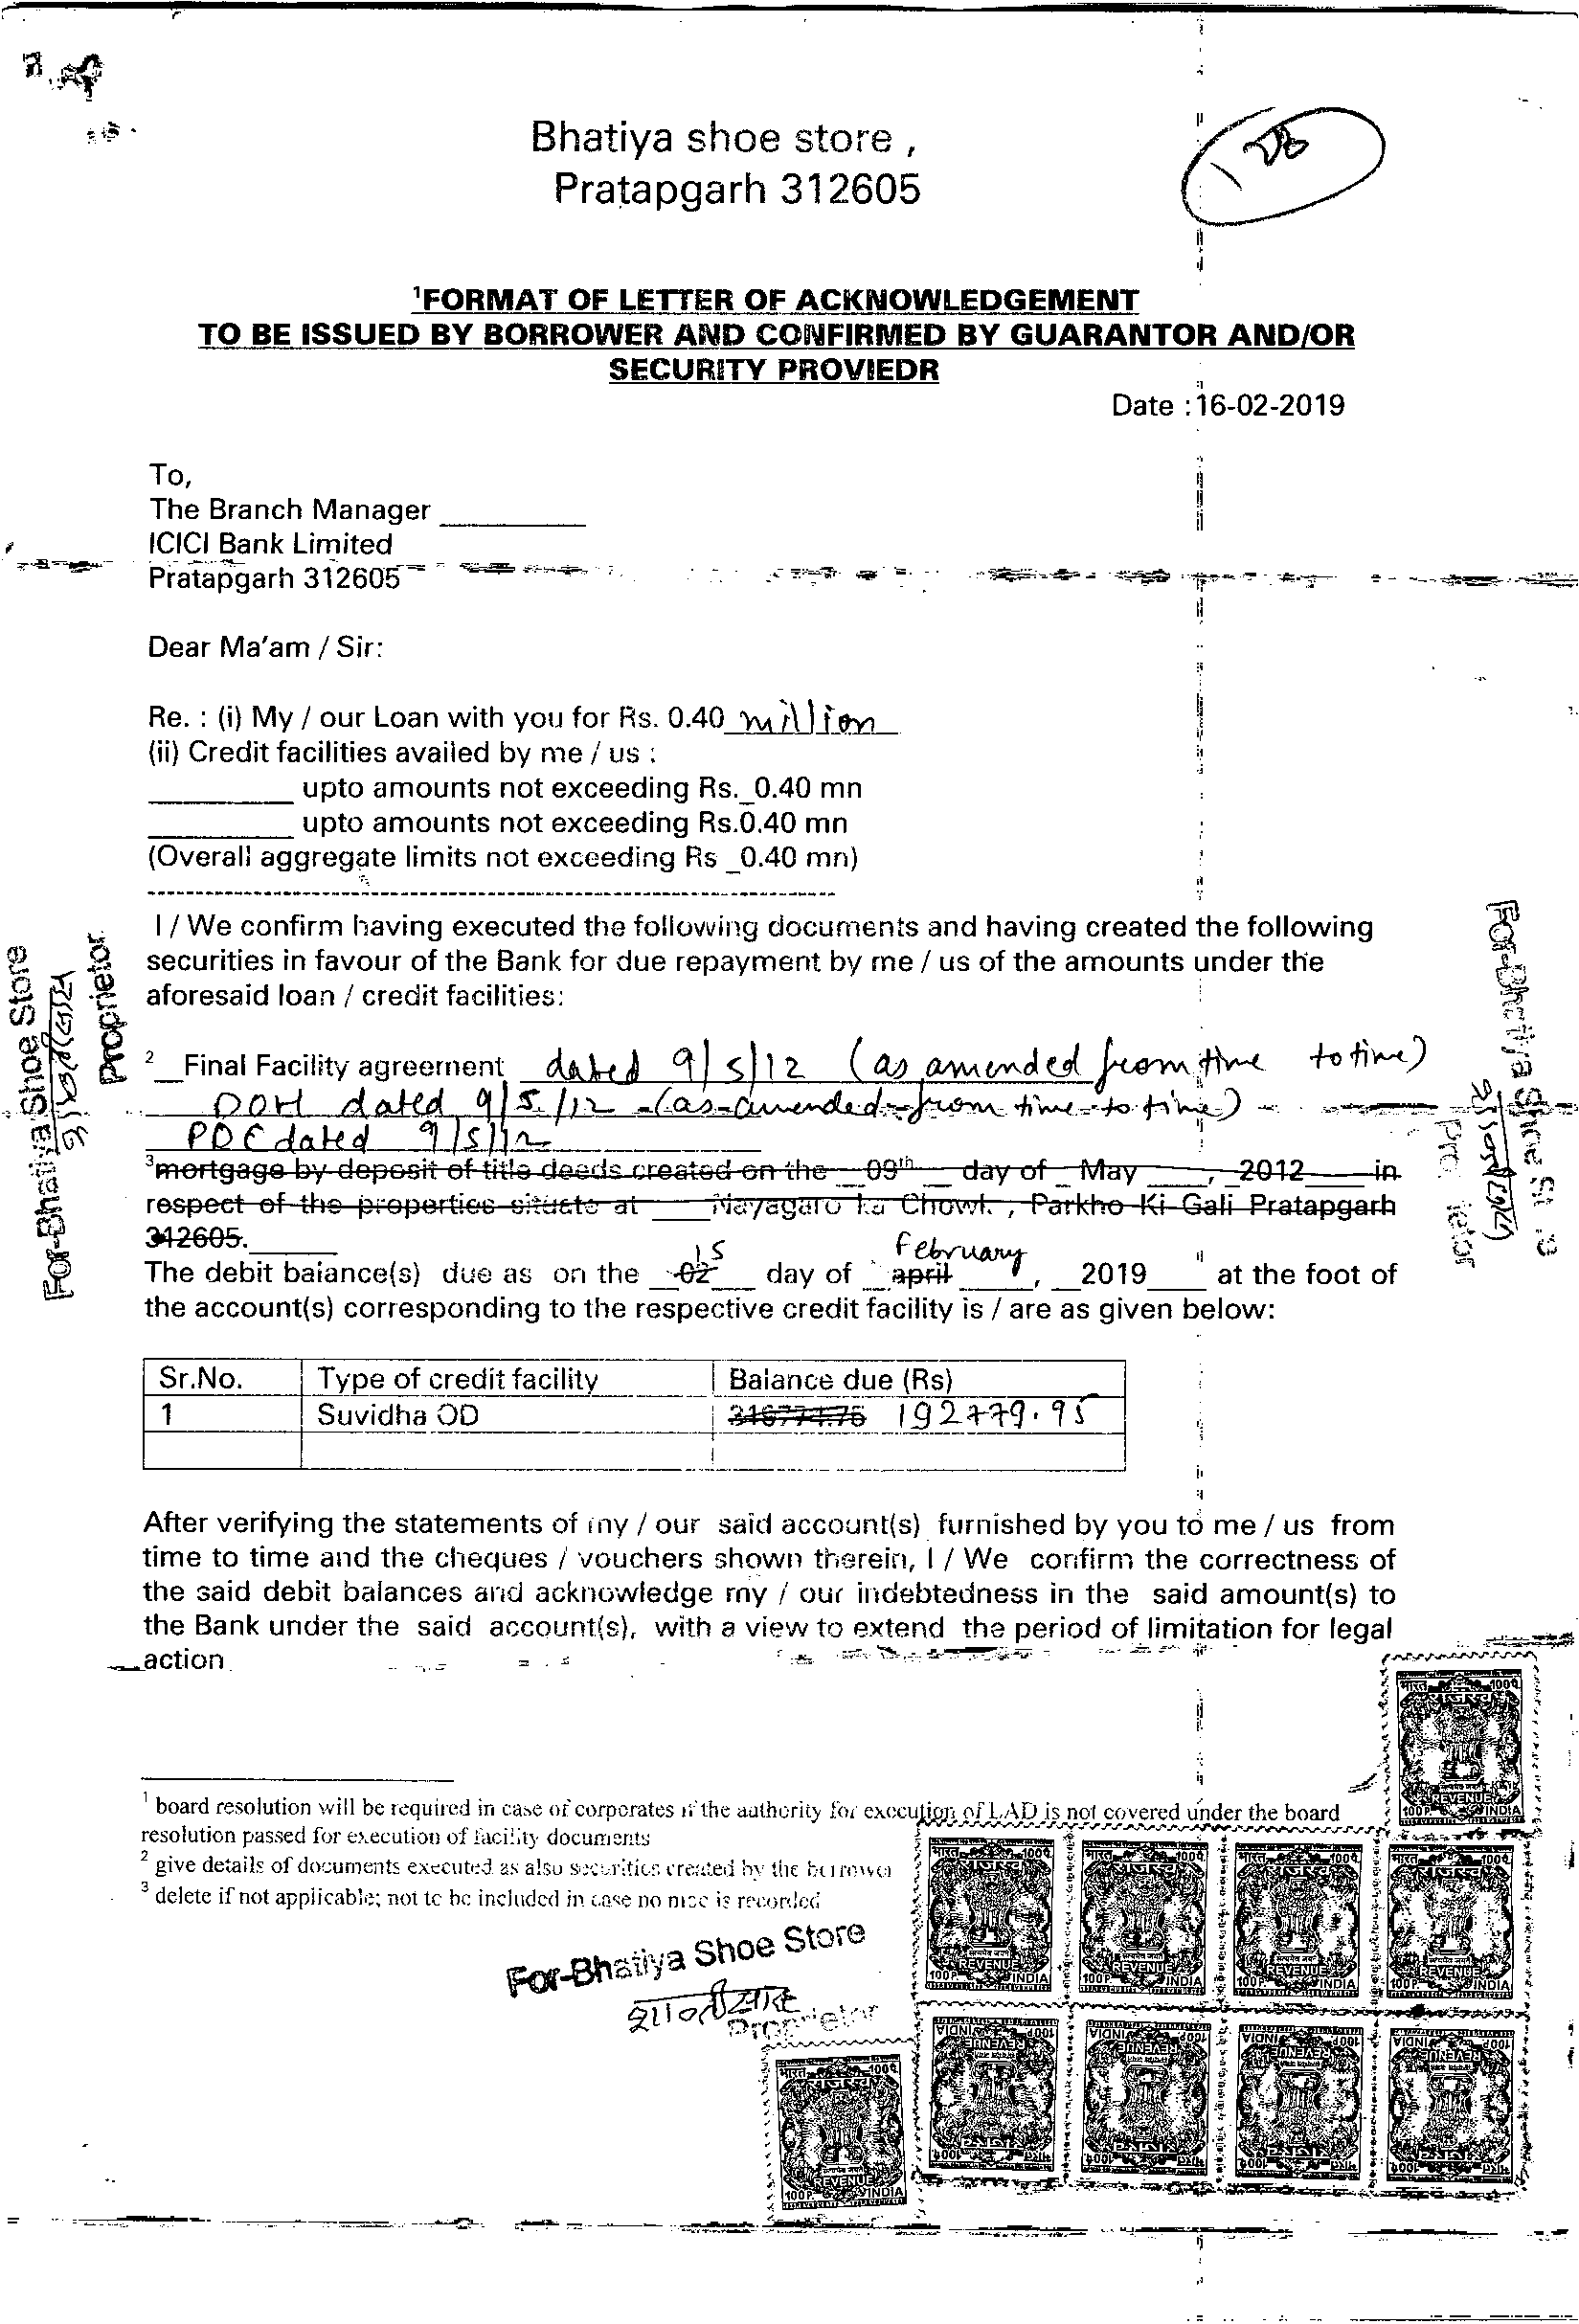 Bhatiya shoe store ,
Pratapgarh 312605
¹FORMAT OF LETTER OF ACKNOWLEDGEMENT
TO BE ISSUED BY BORROWER AND CONFIRMED BY GUARANTOR AND/OR
SECURITY PROVIEDR
Date : 16-02-2019
To,
The Branch Manager
ICICI Bank Limited
Pratapgarh 312605
Dear Ma'am / Sir:
Re. : (i) My / our Loan with you for Rs. 0.40 million
(ii) Credit facilities availed by me / us :
upto amounts not exceeding Rs._0.40 mn
upto amounts not exceeding Rs.0.40 mn
(Overall aggregate limits not exceeding Rs _0.40 mn)
I / We confirm having executed the following documents and having created the following
securities in favour of the Bank for due repayment by me / us of the amounts under the
aforesaid loan / credit facilities:
For-Bhatiya Shoe Store
Proprietor
For-Bhatiya Shoe St
² Final Facility agreement dated 9/5/12 (as amended from time to time)
DOH dated 9/5/12 (as amended from time to time)
PDC dated 9/5/12
³mortgage by deposit of title deeds created on the 09th day of May , 2012 in
respect of the properties situate at Nayagaro ka Chowk , Parkho Ki Gali Pratapgarh
312605.
The debit balance(s) due as on the 02 15 day of april February , 2019 at the foot of
the account(s) corresponding to the respective credit facility is / are as given below:
Sr.No. Type of credit facility Balance due (Rs)
1 Suvidha OD 316774.76 192779.95
After verifying the statements of my / our said account(s) furnished by you to me / us from
time to time and the cheques / vouchers shown therein, I / We confirm the correctness of
the said debit balances and acknowledge my / our indebtedness in the said amount(s) to
the Bank under the said account(s), with a view to extend the period of limitation for legal
action
¹ board resolution will be required in case of corporates if the authority for execution of LAD is not covered under the board
resolution passed for execution of facility documents
² give details of documents executed as also securities created by the borrower
³ delete if not applicable; not to be included in case no mise is recorded
For-Bhatiya Shoe Store
Proprietor
भारत 100P
राजस्व
REVENUE
100P INDIA
भारत 100P भारत 100P भारत 100P भारत 100P
राजस्व राजस्व राजस्व राजस्व
REVENUE REVENUE REVENUE REVENUE
100P INDIA 100P INDIA 100P INDIA 100P INDIA
INDIA 100P INDIA 100P INDIA 100P INDIA 100P
REVENUE REVENUE REVENUE REVENUE
भारत 100P
राजस्व
REVENUE
100P INDIA